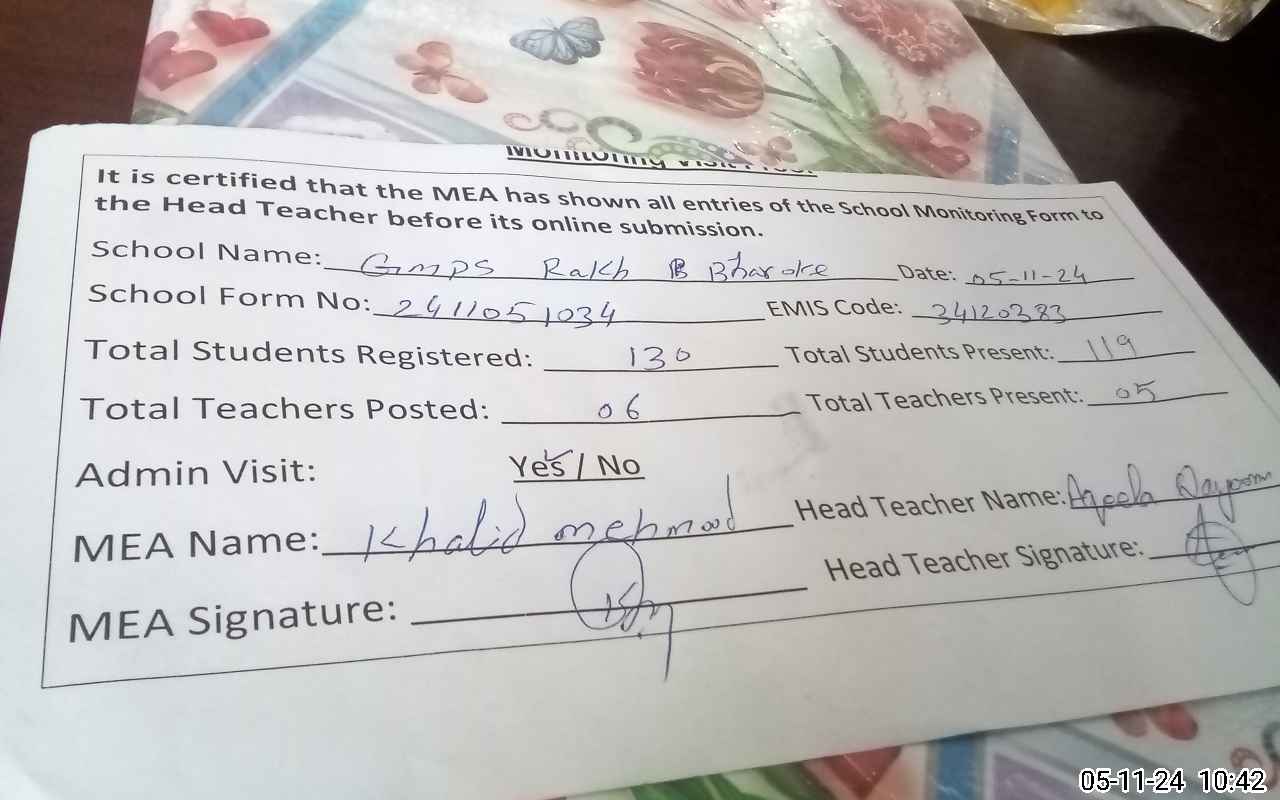 Monitoring Visit Proof
It is certified that the MEA has shown all entries of the School Monitoring Form to
the Head Teacher before its online submission.
School Name: GMPS Rakh B Bharoke Date: 05-11-24
School Form No: 2411051034 EMIS Code: 34120383
Total Students Registered: 130 Total Students Present: 119
Total Teachers Posted: 06 Total Teachers Present: 05
Admin Visit: Yes / No
MEA Name: Khalid mehmood Head Teacher Name: Aqeela Qayoom
MEA Signature: Head Teacher Signature:
05-11-24 10:42